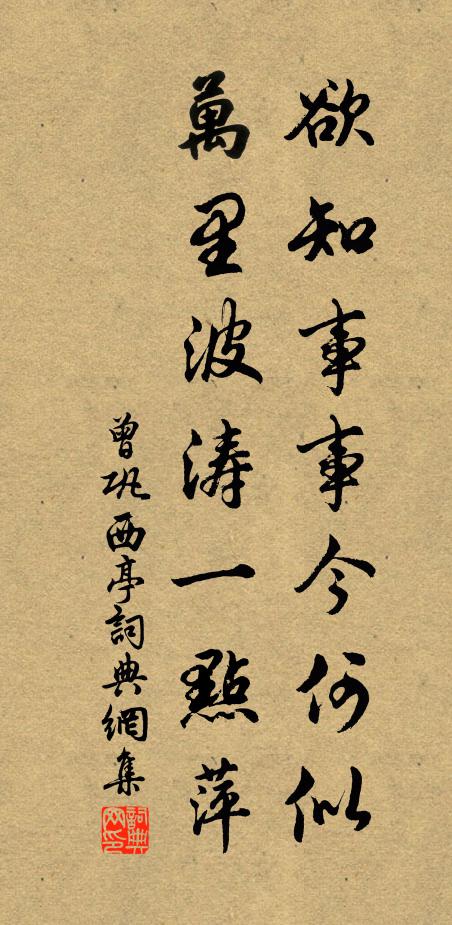 欲知事事今何似
萬里波涛一點萍
曾巩西亭詞典網集
詞典網印